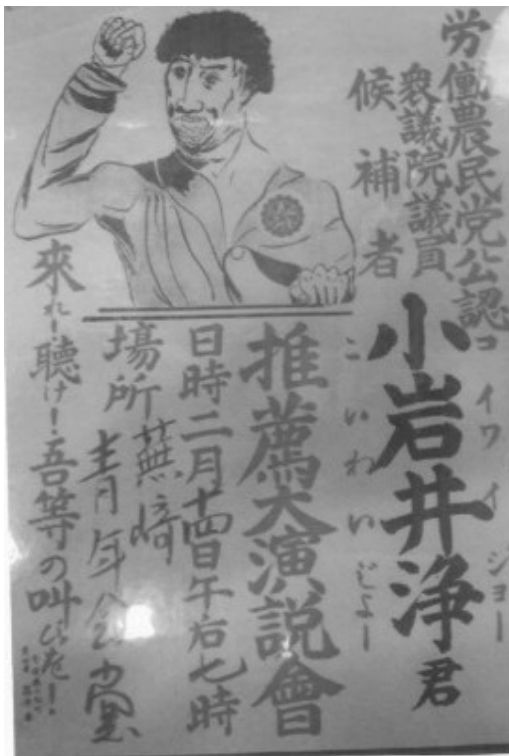 労働農民党公認
衆議院議員
候補者
コイワイジョー
小岩井浄君
こいわいじよー
推薦大演説會
日時二月十四日午后七時
場所蕪崎
青年会堂
來れ!聴け!吾等の叫びを!